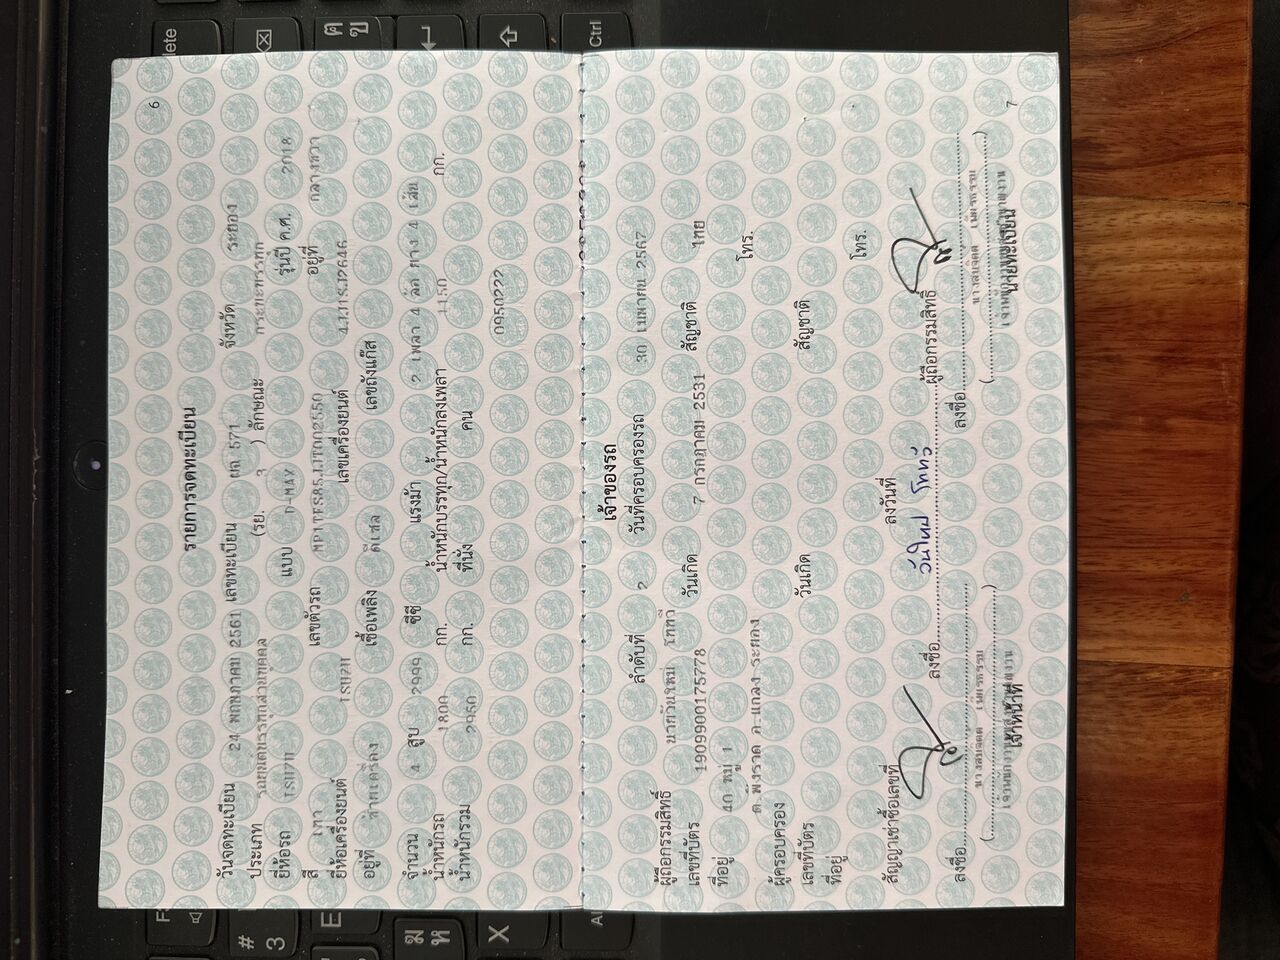 6
รายการจดทะเบียน
วันจดทะเบียน 24 พฤษภาคม 2561 เลขทะเบียน ผต 571 จังหวัด ระยอง
ประเภท รถยนต์บรรทุกส่วนบุคคล (รย. 3 ) ลักษณะ กระบะบรรทุก
ยี่ห้อรถ ISUZU แบบ D-MAX รุ่นปี ค.ศ. 2018
สี เทา เลขตัวรถ MP1TFS85JJT002550 อยู่ที่ กลางขวา
ยี่ห้อเครื่องยนต์ ISUZU เลขเครื่องยนต์ 4JJ1SJ2646
อยู่ที่ ซ้ายเครื่อง เชื้อเพลิง ดีเซล เลขถังแก๊ส
จำนวน 4 สูบ 2999 ซีซี แรงม้า 2 เพลา 4 ล้อ ยาง 4 เส้น
น้ำหนักรถ 1800 กก. น้ำหนักบรรทุก/น้ำหนักลงเพลา 1150 กก.
น้ำหนักรวม 2950 กก. ที่นั่ง คน
0950222
เจ้าของรถ
ลำดับที่ 2 วันที่ครอบครองรถ 30 เมษายน 2567
ผู้ถือกรรมสิทธิ์ นายวันใหม่ โททวี
เลขที่บัตร 1909900175778 วันเกิด 7 กรกฎาคม 2531 สัญชาติ ไทย
ที่อยู่ 40 หมู่ 1 โทร.
ต.พังราด อ.แกลง ระยอง
ผู้ครอบครอง
เลขที่บัตร วันเกิด สัญชาติ
ที่อยู่ โทร.
สัญญาเช่าซื้อเลขที่ ลงวันที่
ลงชื่อ วันใหม่ โททวี ผู้ถือกรรมสิทธิ์
ลงชื่อ ลงชื่อ
เจ้าหน้าที่ นายทะเบียน
7
# 3
E
X
Ctrl